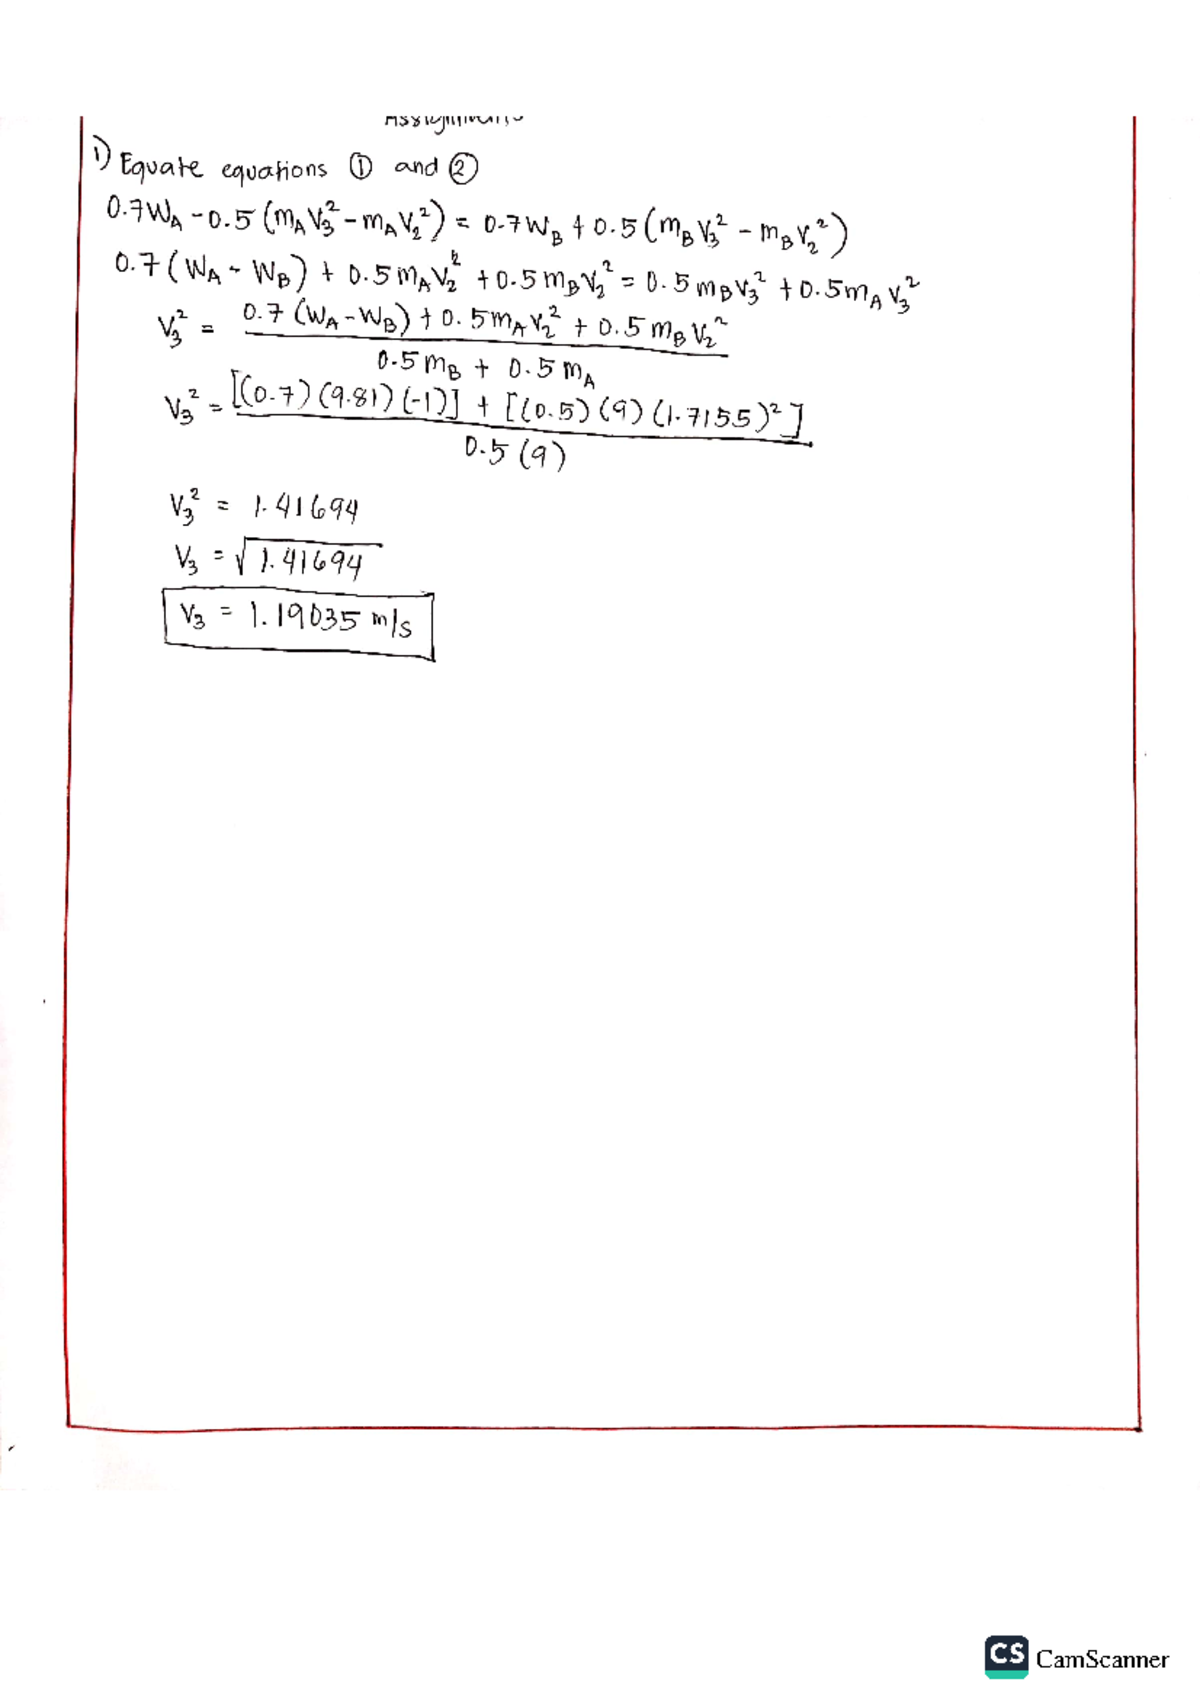 1) Equate equations ① and ②
0.7W_A - 0.5 (m_A V_3² - m_A V_2²) = 0.7W_B + 0.5 (m_B V_3² - m_B V_2²)
0.7 (W_A - W_B) + 0.5 m_A V_2² + 0.5 m_B V_2² = 0.5 m_B V_3² + 0.5 m_A V_3²
V_3² = 0.7 (W_A - W_B) + 0.5 m_A V_2² + 0.5 m_B V_2²
0.5 m_B + 0.5 m_A
V_3² = [(0.7) (9.81) (-1)] + [(0.5) (9) (1.7155)²]
0.5 (9)
V_3² = 1.41694
V_3 = √1.41694
V_3 = 1.19035 m/s
CS CamScanner